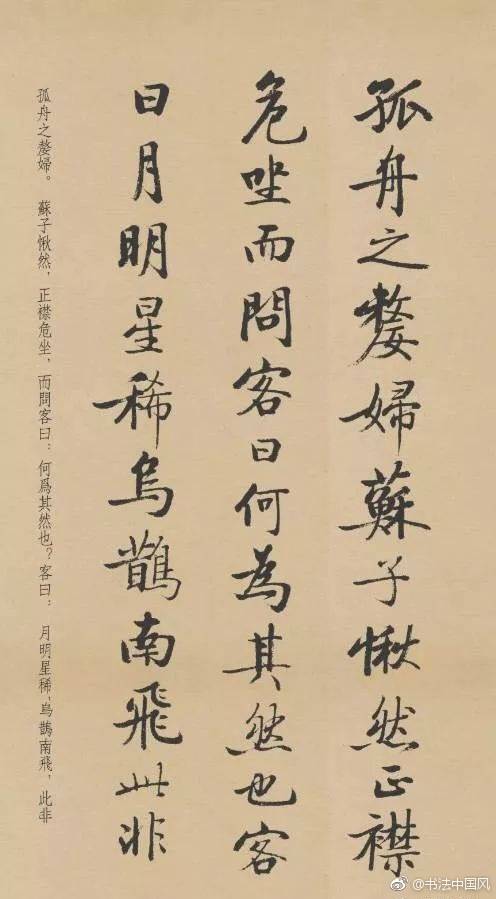 孤舟之嫠婦蘇子愀然正襟
危坐而問客曰何為其然也客
曰月明星稀烏鵲南飛此非
孤舟之嫠婦。 蘇子愀然，正襟危坐，而問客曰：何爲其然也？客曰： 月明星稀，烏鵲南飛，此非
@书法中国风